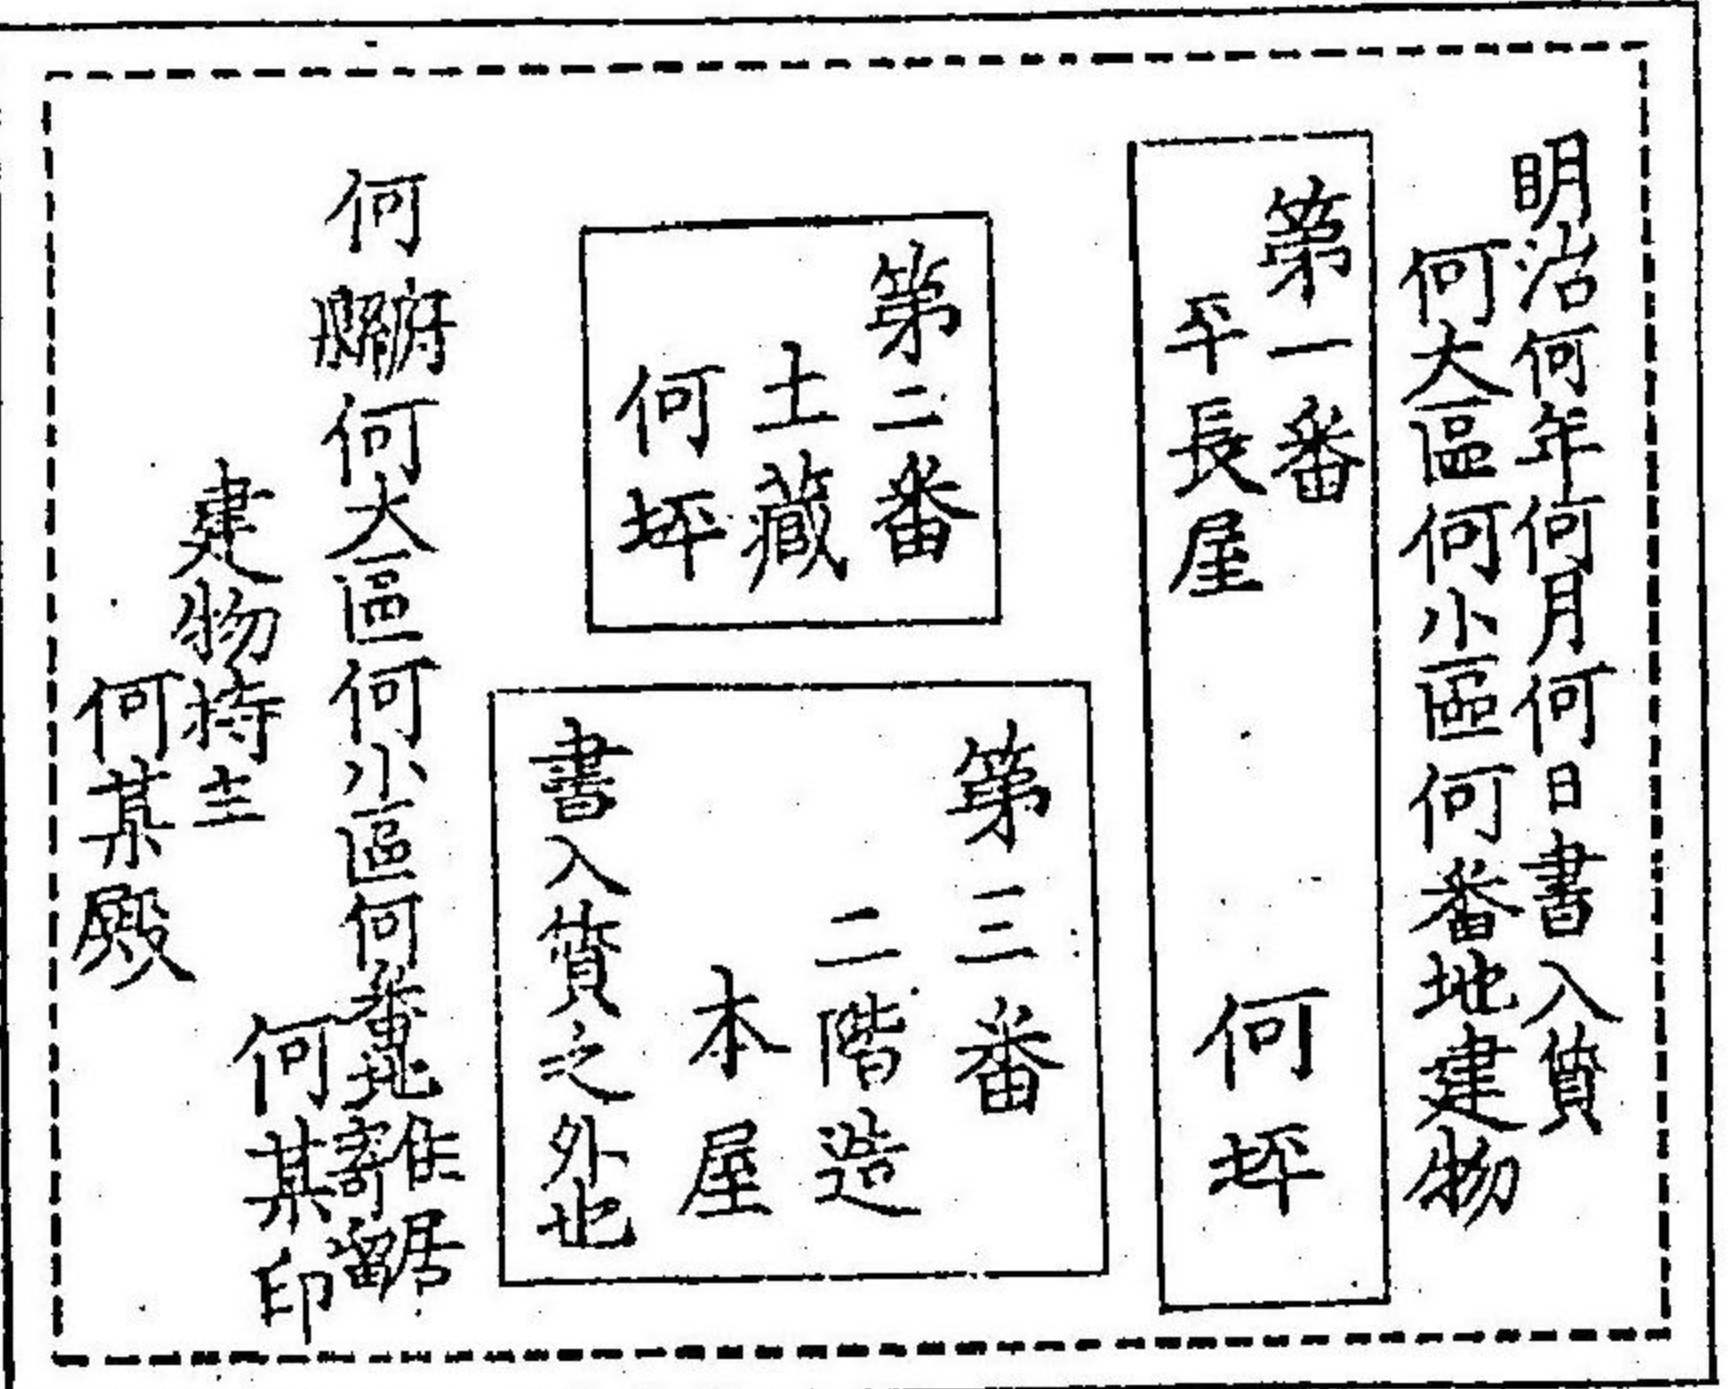 明治何年何月何日書入質
何大區何小區何番地建物
第一番
平長屋 何坪
第二番
土藏
何坪
第三番
二階造
本屋
書入質之外也
何府縣何大區何小區何番地住居寄留
何某印
建物持主
何某殿